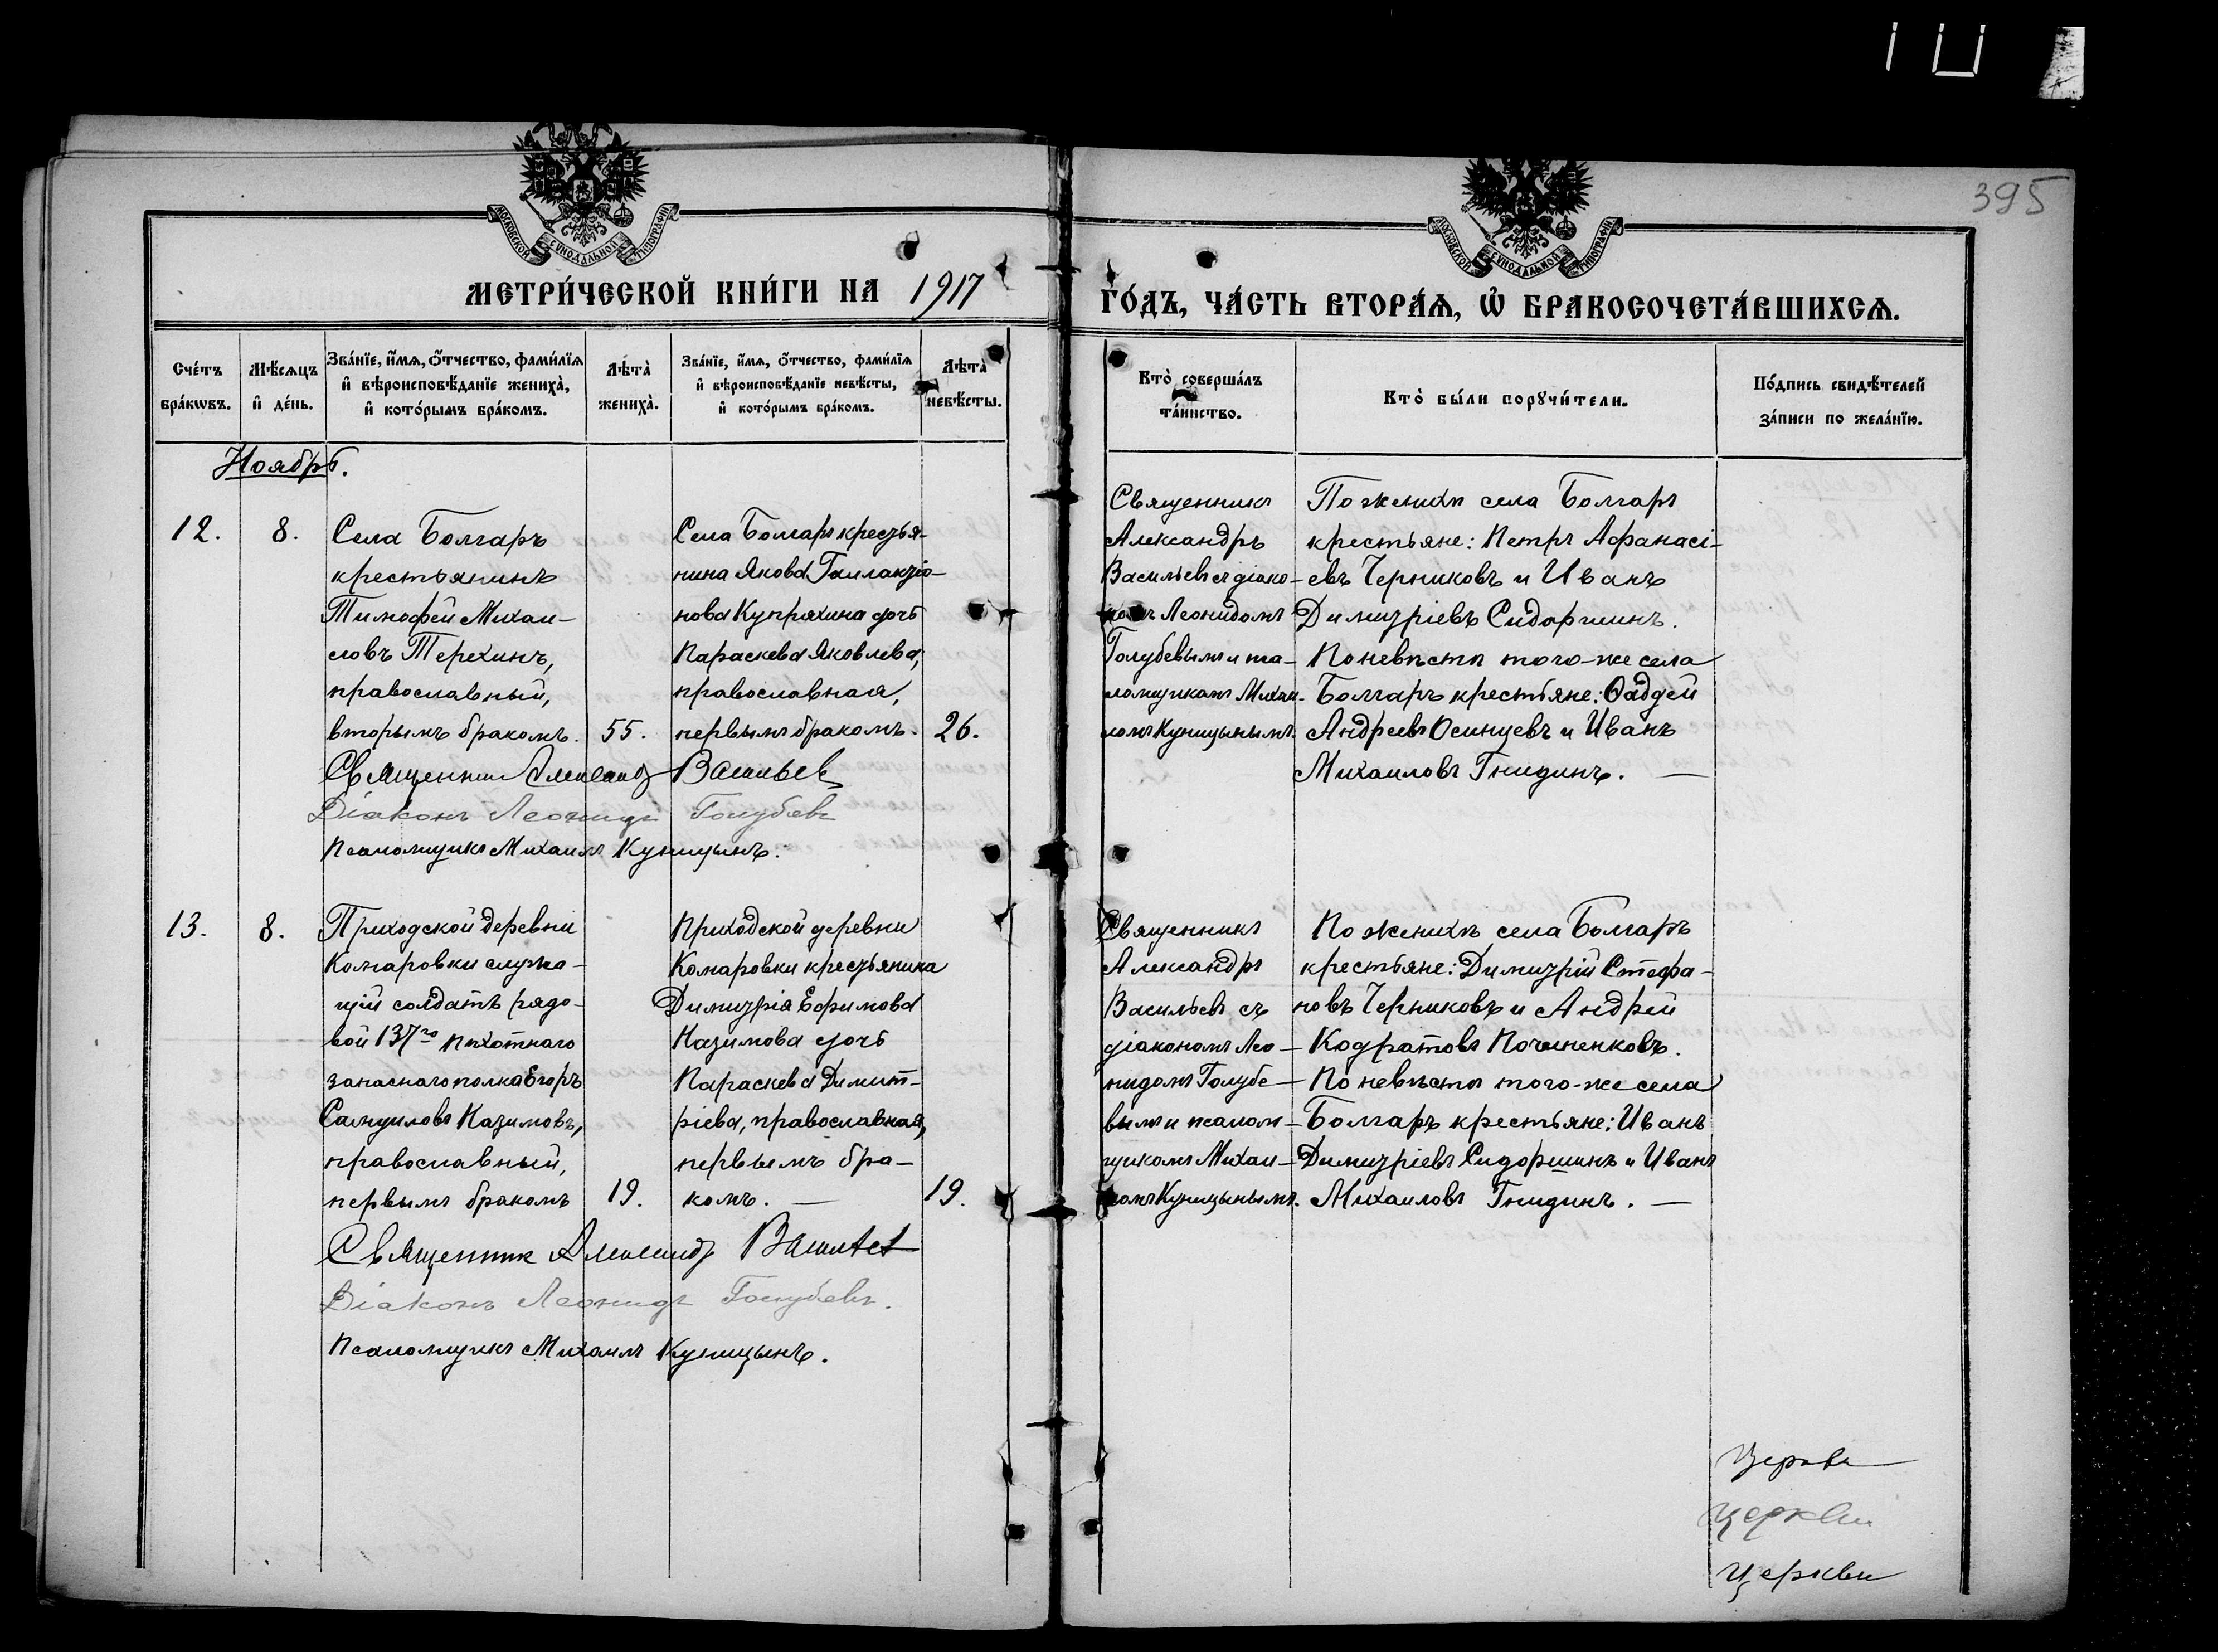 395
МОСКОВСКОЙ СѴНОДАЛЬНОЙ ТИПОГРАФІИ
МОСКОВСКОЙ СѴНОДАЛЬНОЙ ТИПОГРАФІИ
МЕТРИ́ЧЕСКОЙ КНИ́ГИ НА 1917
ГО́ДЪ, ЧА́СТЬ ВТОРА́Ѧ, Ѡ҆ БРАКОСОЧЕТА́ВШИХСѦ.
Сче́тъ бра́кѡвъ.
Мѣ́сѧцъ и҆ де́нь.
Зва́нїе, и҆́мѧ, ѻ҆́тчество, фами́лїѧ
и҆ вѣроисповѣ́данїе жениха̀,
и҆ кото́рымъ бра́комъ.
Лѣта̀ жениха̀.
Зва́нїе, и҆́мѧ, ѻ҆́тчество, фами́лїѧ
и҆ вѣроисповѣ́данїе невѣ́сты,
и҆ кото́рымъ бра́комъ.
Лѣта̀ невѣ́сты.
Кто̀ соверша́лъ
та́инство.
Кто̀ бы́ли порꙋчи́тели.
По́дпись свидѣ́телей
за́писи по жела́нїю.
Ноябрь.
12.
8.
Села Болгаръ
крестьянинъ
Тимофей Михаи-
ловъ Терехинъ,
православный,
вторымъ бракомъ.
55.
Села Болгаръ крестья-
нина Якова Галакціо-
нова Купряхина дочь
Параскева Яковлева,
православная,
первымъ бракомъ.
26.
Священникъ
Александръ
Васильевъ съ діако-
номъ Леонидомъ
Голубевымъ и пса-
ломщикомъ Михаи-
ломъ Куницынымъ.
По женихѣ села Болгаръ
крестьяне: Петръ Афанасі-
евъ Черниковъ и Иванъ
Димитріевъ Сидоршинъ.
По невѣстѣ того-же села
Болгаръ крестьяне: Ѳаддей
Андреевъ Осинцевъ и Иванъ
Михаиловъ Гнидинъ. —
Священник Александр Васильев
Діаконъ Леонидъ Голубевъ
Псаломщикъ Михаилъ Куницынъ.
13.
8.
Приходской деревни
Комаровки служа-
щій солдатъ рядо-
вой 137го пѣхотнаго
запаснаго полка Егоръ
Самуиловъ Казимовъ,
православный,
первымъ бракомъ
19.
Приходской деревни
Комаровки крестьянина
Димитрія Ефимова
Казимова дочь
Параскева Димит-
ріева, православная,
первымъ бра-
комъ. —
19.
Священникъ
Александръ
Васильевъ съ
діакономъ Лео-
нидомъ Голубе-
вымъ и псалом-
щикомъ Михаи-
ломъ Куницынымъ.
По женихѣ села Болгаръ
крестьяне: Димитрій Стефа-
новъ Черниковъ и Андрей
Кодратовъ Починенковъ.
По невѣстѣ того-же села
Болгаръ крестьяне: Иванъ
Димитріевъ Сидоршинъ и Иванъ
Михаиловъ Гнидинъ. —
Священник Александр Васильев
Діаконъ Леонидъ Голубевъ.
Псаломщикъ Михаилъ Куницынъ.
Церкви
церкви
церкви